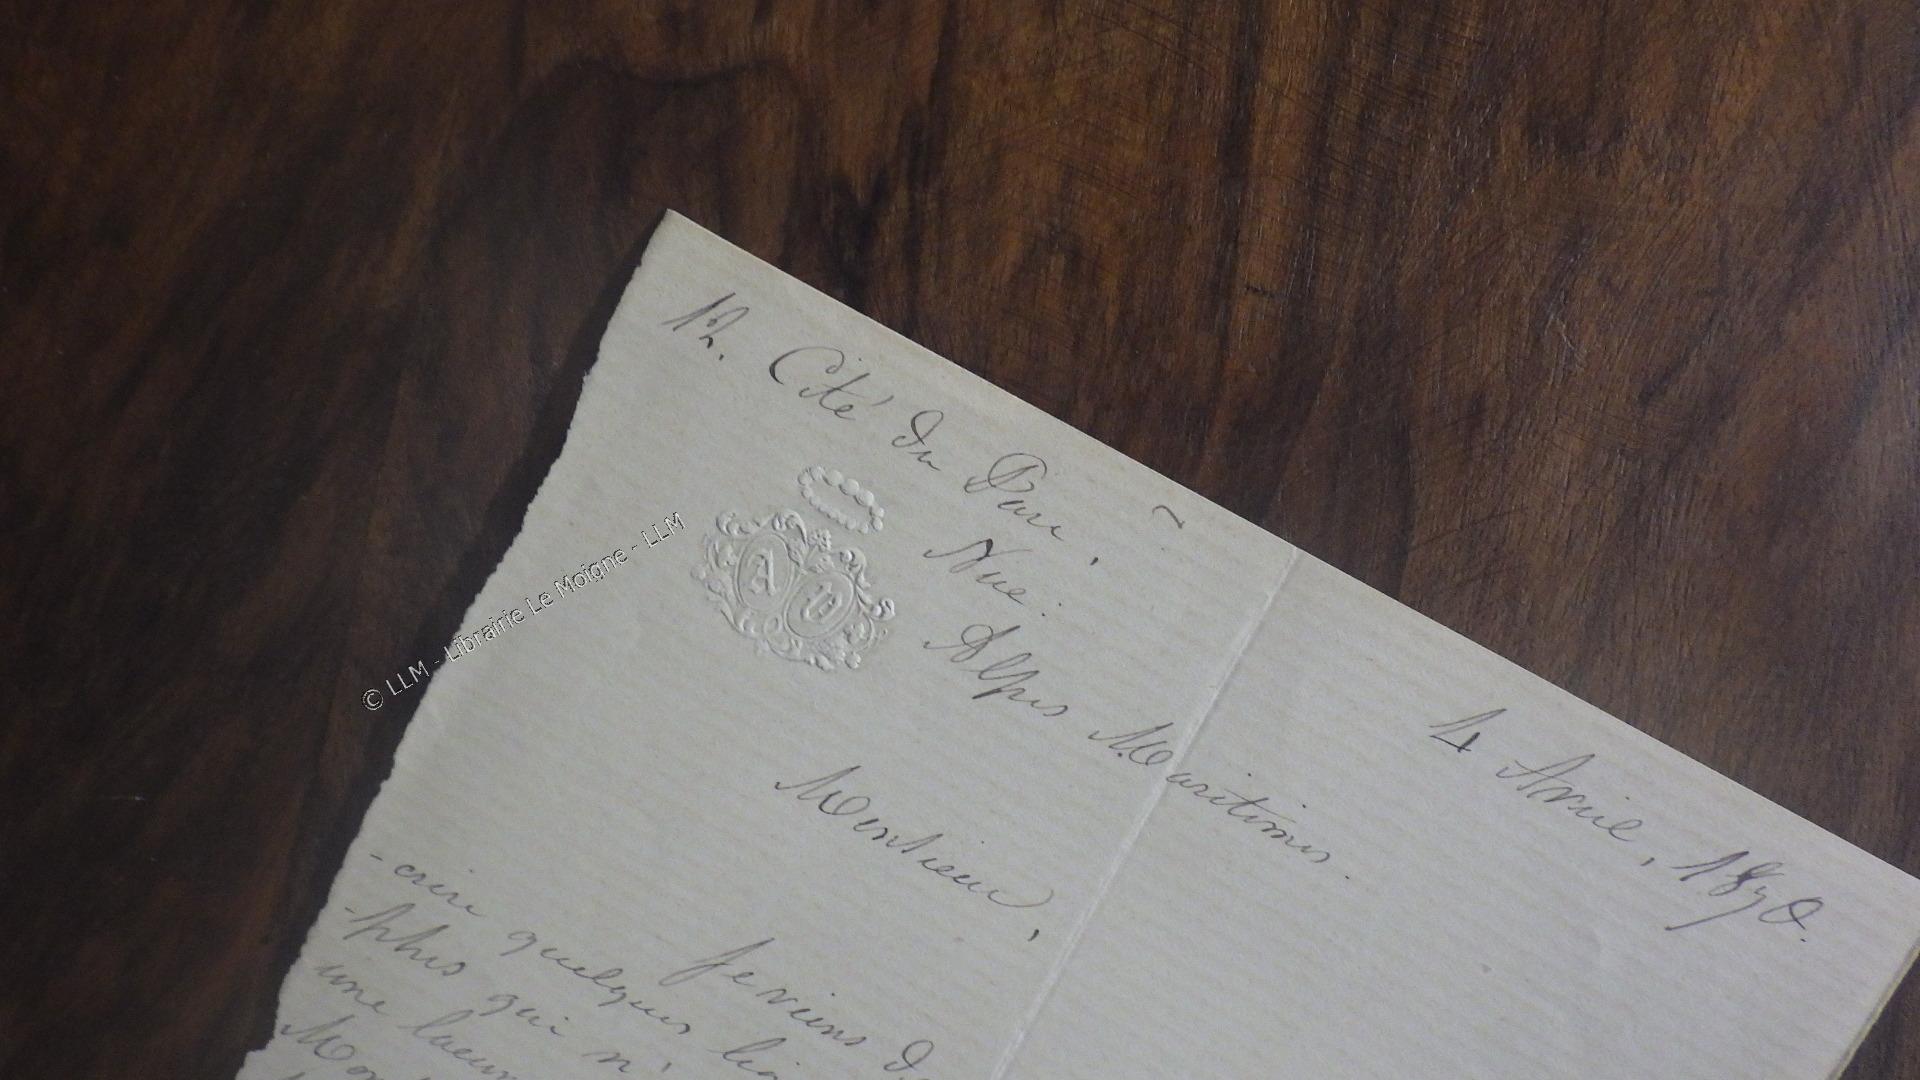 12. Cité du Parc,
Nice.
Alpes Maritimes.
4 Avril, 1878.
A D
Monsieur,
Je viens d
-crire quelques lig
-phes qui n'
une lacun
Mon
© LLM - Librairie Le Moigne - LLM